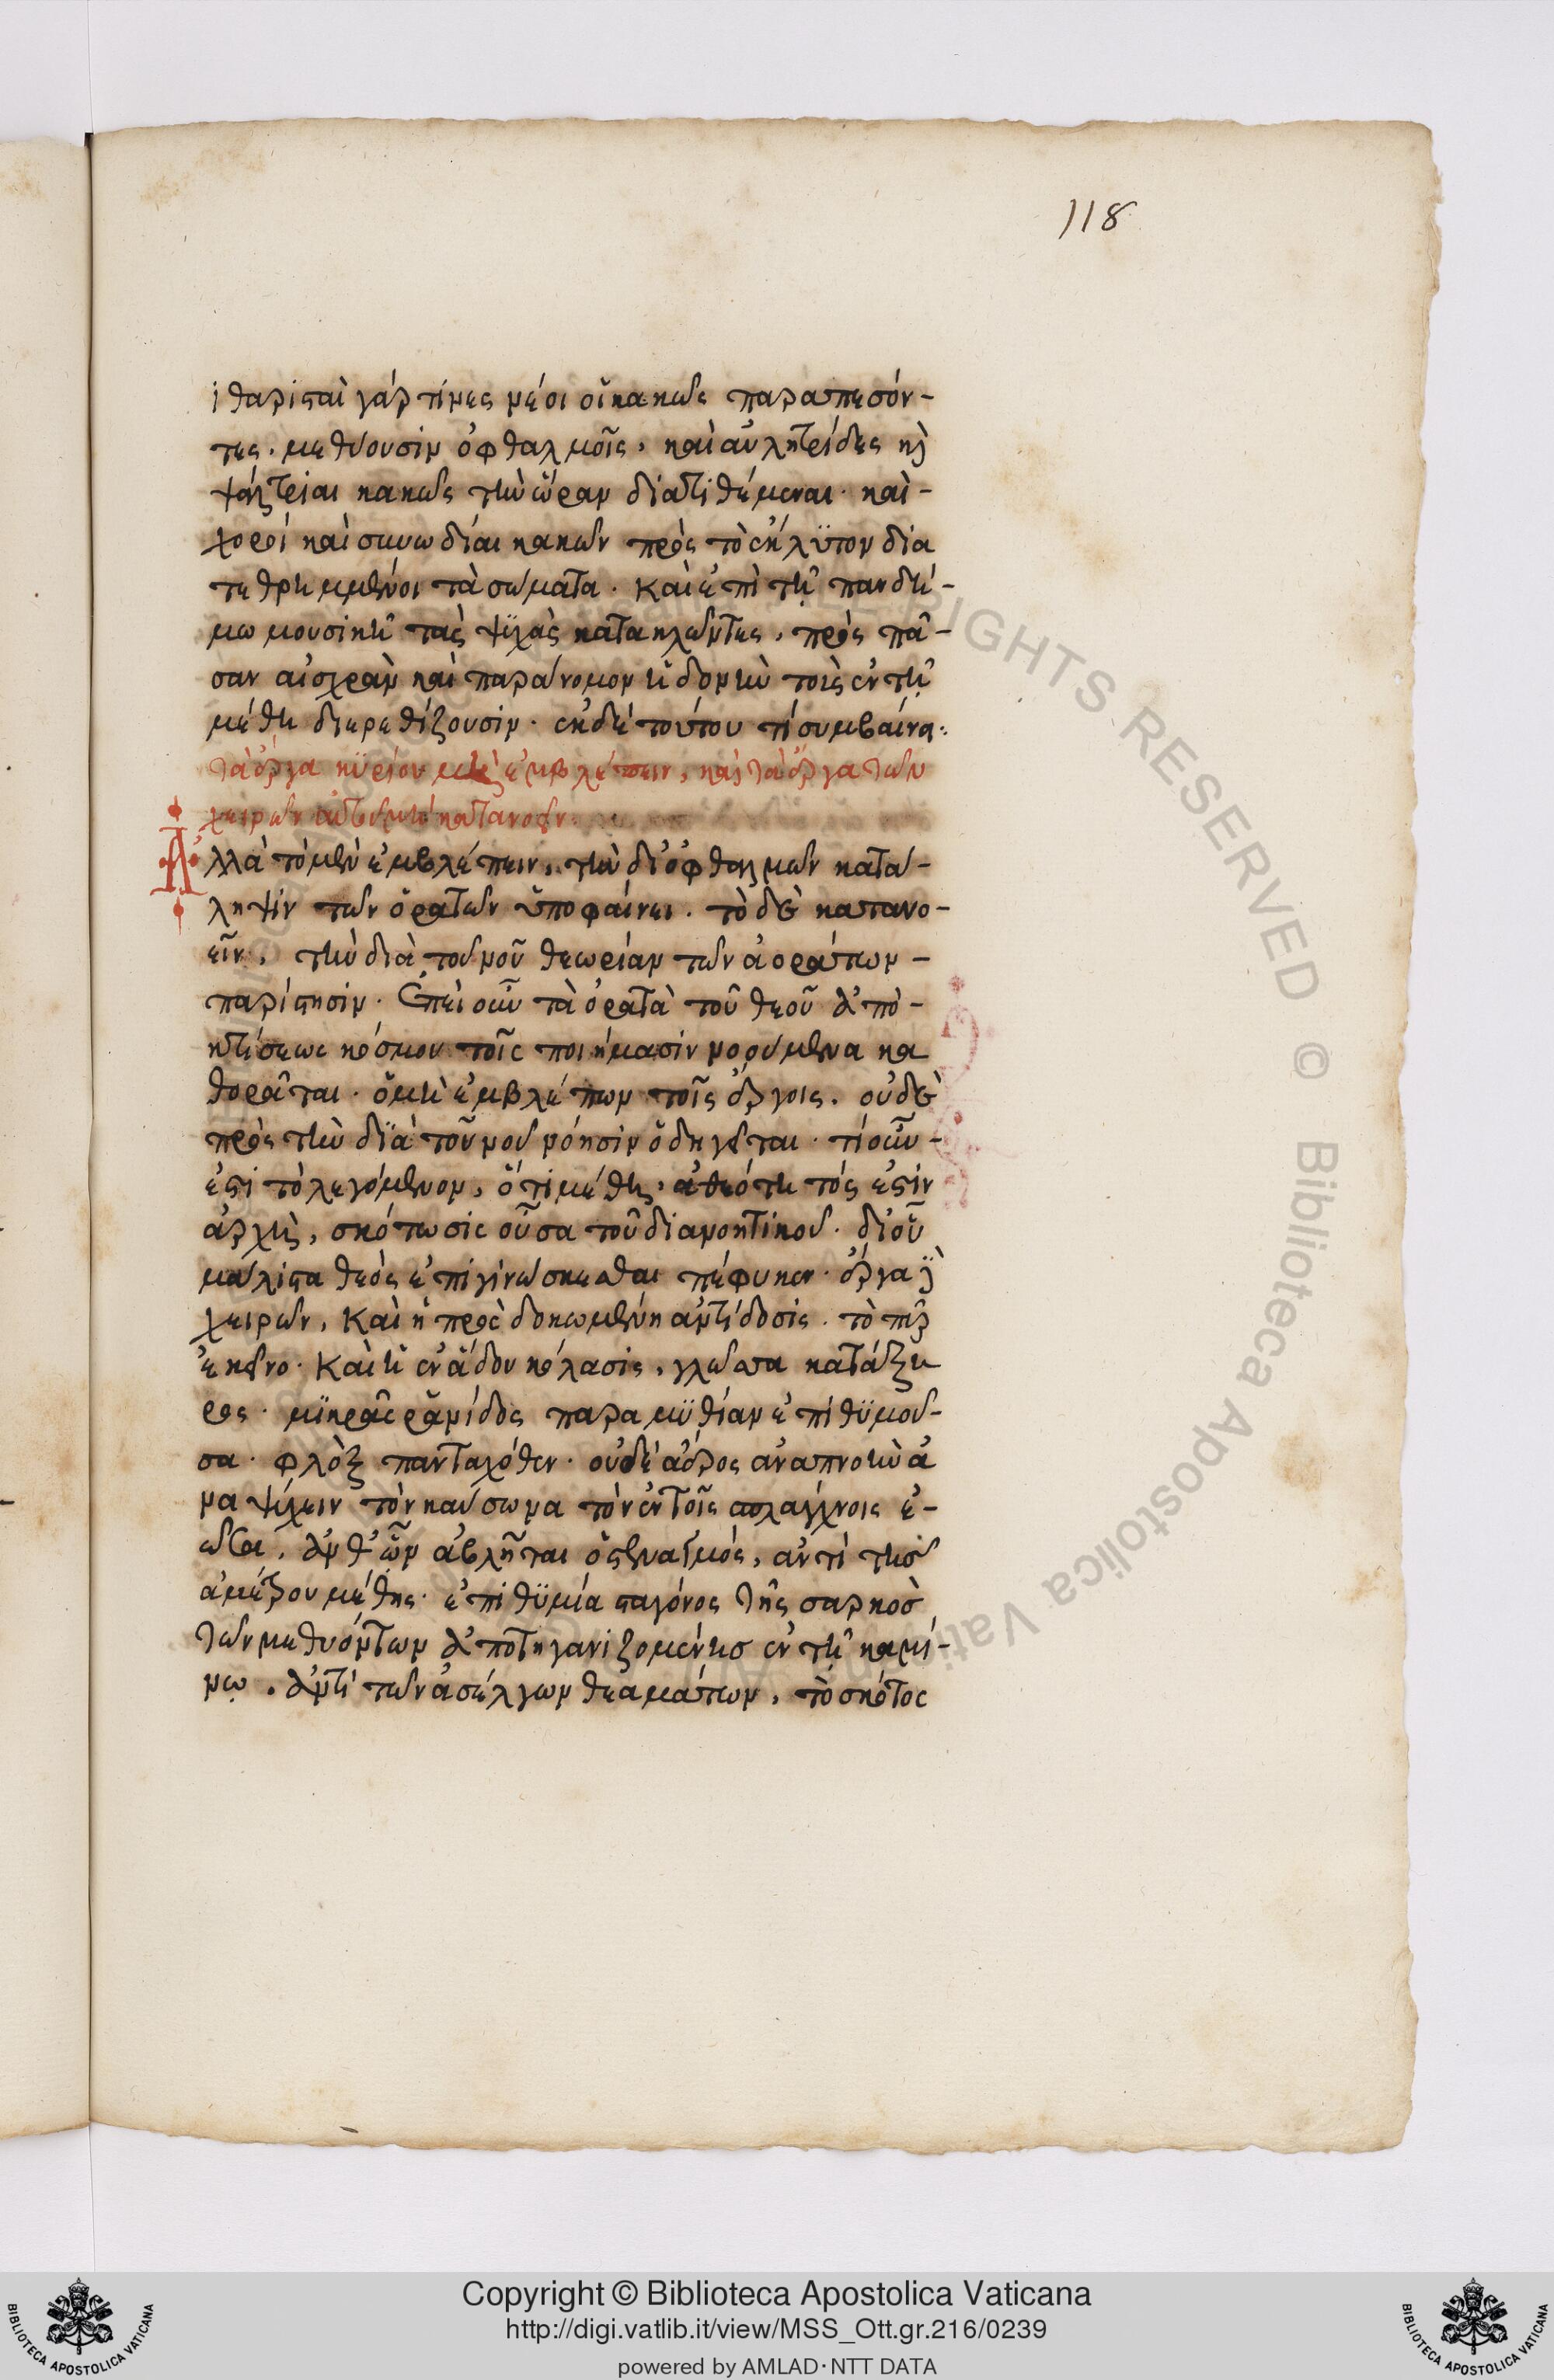 118
ιθαρισταὶ γάρ τινες νέοι οἱ κακῶς παραπεσόν-
τες. μεθύουσιν ὀφθαλμοῖς, καὶ αὐλητρίδες κ(αὶ)
ψάλτριαι κακῶς τὴν ὥραν διατιθέμεναι· καὶ-
χοροί καὶ συνωδίαι κακῶν πρὸς τὸ ἔκλυτον δια
τεθρημμένοι τὰ σώματα. Καὶ ἐπὶ τῆ πανδή-
μω μουσικῆ τὰς ψυχὰς κατακλῶντες, πρὸς πᾶ-
σαν αἰσχρὰν καὶ παράνομον ἡδονὴν τοῖς ἐν τῆ
μέθη διερεθίζουσιν. ἐκ δὲ τούτου τί συμβαίνει:
τὰ ἔργα κυρίου μὴ ἐμβλέπειν, καὶ τὰ ἔργα τῶν
χειρῶν αὐτοῦ μὴ κατανοεῖν.
Ἀλλὰ τὸ μὲν ἐμβλέπειν, τὴν δι' ὀφθαλμῶν κατά-
ληψιν τῶν ὁρατῶν ὑποφαίνει. τὸ δὲ κατανο-
εῖν, τὴν διὰ τοῦ νοῦ θεωρίαν τῶν ἀοράτων -
παρίστησιν. Ἐπεὶ οὖν τὰ ὁρατὰ τοῦ θεοῦ ἀπὸ -
κτίσεως κόσμου τοῖς ποιήμασιν νοούμενα κα
θορᾶται. ὁ μὴ ἐμβλέπων τοῖς ἔργοις. οὐδὲ
πρὸς τὴν διὰ τοῦ νοῦ νόησιν ὁδηγεῖται. τί οὖν -
ἐστι τὸ λεγόμενον, ὅτι μέθη, ἀθεότητός ἐστιν
ἀρχὴ, σκότωσις οὖσα τοῦ διανοητικοῦ. δι' οὗ
μάλιστα θεὸς ἐπιγινώσκεσθαι πέφυκεν. ἔργα δὲ
χειρῶν, Καὶ ἡ προσδοκωμένη ἀντίδοσις. τὸ πῦρ
ἐκεῖνο. Καὶ ἡ ἐν ἅδου κόλασις, γλῶσσα κατάξη
ρος. μικρᾶς ῥανίδος παραμυθίαν ἐπιθυμοῦ-
σα. φλὸξ πανταχόθεν. οὐδὲ ἀέρος ἀναπνοὴν ἀ
ναψύχειν τὸν καύσωνα τὸν ἐν τοῖς σπλάγχνοις ἐ-
ῶσα, ἀνθ' ὧν ἀβλῆται ὁ στεναγμὸς, ἀντὶ τῆς
ἀμέτρου μέθης. ἐπιθυμία σταγόνος τῆς σαρκὸς
τῶν μεθυόντων ἀποτηγανιζομένης ἐν τῆ καμί-
νῳ. ἀντὶ τῶν ἀσέλγων θεαμάτων, τὸ σκότος
Copyright © Biblioteca Apostolica Vaticana
http://digi.vatlib.it/view/MSS_Ott.gr.216/0239
powered by AMLAD·NTT DATA